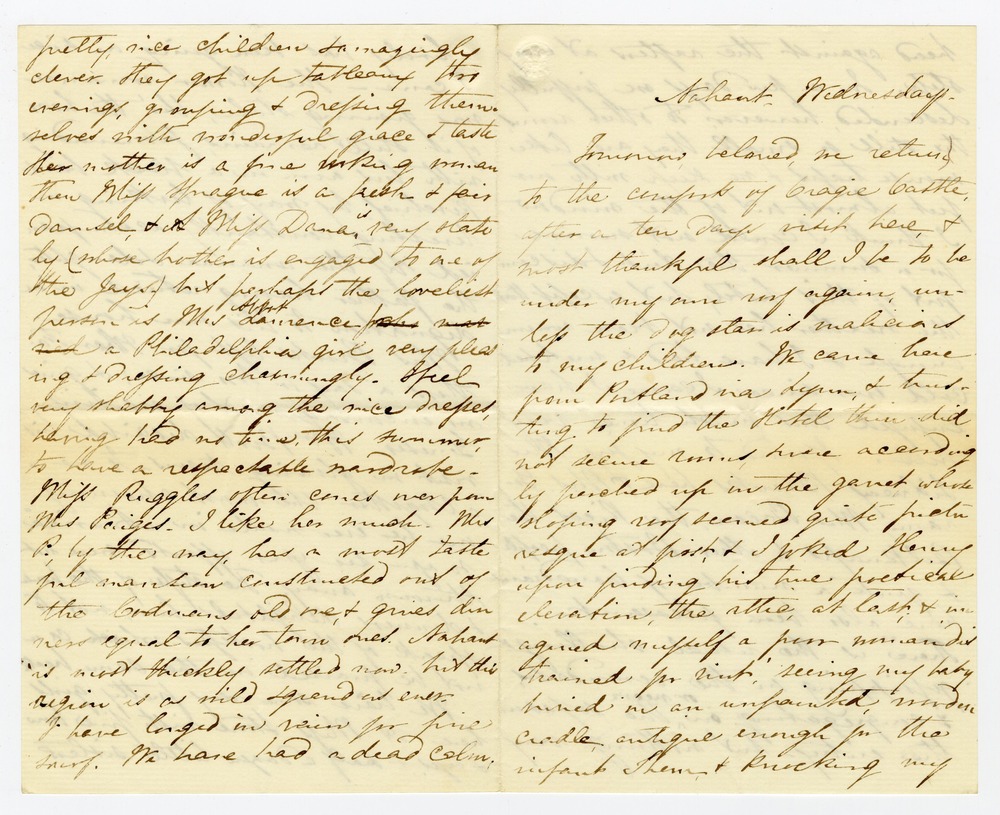 Nahant. Wednesday.
Tomorrow, beloved, we return
to the comforts of Cragie Castle,
after a ten days visit here, &
most thankful shall I be to be
under my own roof again, un-
less the dog star is malicious
to my children. We came here
from Portland via Lynn, & trus-
ting to find the Hotel thin did
not secure rooms, were according
ly perched up in the garret whose
sloping roof seemed quite pictu
resque at first, & I joked Henry
upon finding his true poetical
elevation, the attic, at last, & im
agined myself a poor woman 'dis
trained for rent,' seeing my baby
in an unpainted, wooden
cradle, antique enough for the
infant Shem, & knocking my
pretty, nice children so amazingly
clever. They got up tableaux two
evenings, grouping & dressing them-
selves with wonderful grace & taste
Her mother is a fine looking woman
then Miss Sprague is a fresh & fair
damsel, & A Miss Dana, is very state
ly (whose brother is engaged to one of
the Jays.) but perhaps the loveliest
person is Mrs Lawrence
a Philadelphia girl very pleas
ing & dressing charmingly. I feel
very shabby among the nice dresses,
having had no time, this summer,
to have a respectable wardrobe.
Miss Ruggles often comes over from
Mrs Paiges. I like her much. Mrs
P. by the way, has a most taste
ful mansion constructed out of
the Codmans old one, & gives din
ners equal to her town ones. Nahant
is most thickly settled now. but this
region is as wild & grand as ever.
I have longed in vain for fine
surf. We have had a dead calm,